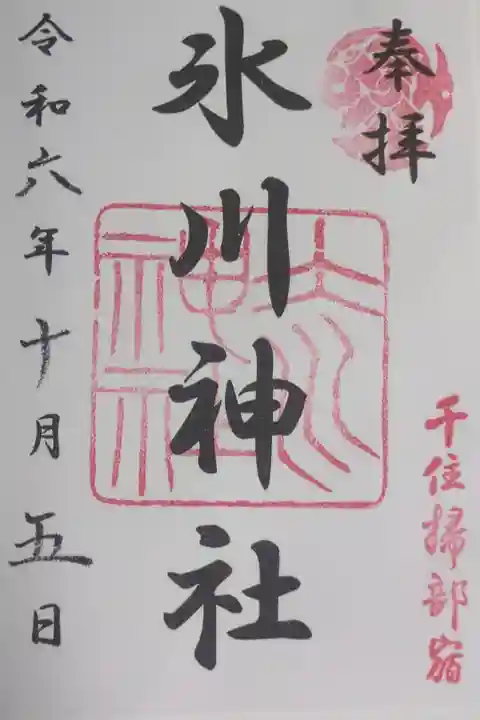 奉拝
千住掃部宿
氷川神社
令和六年十月五日